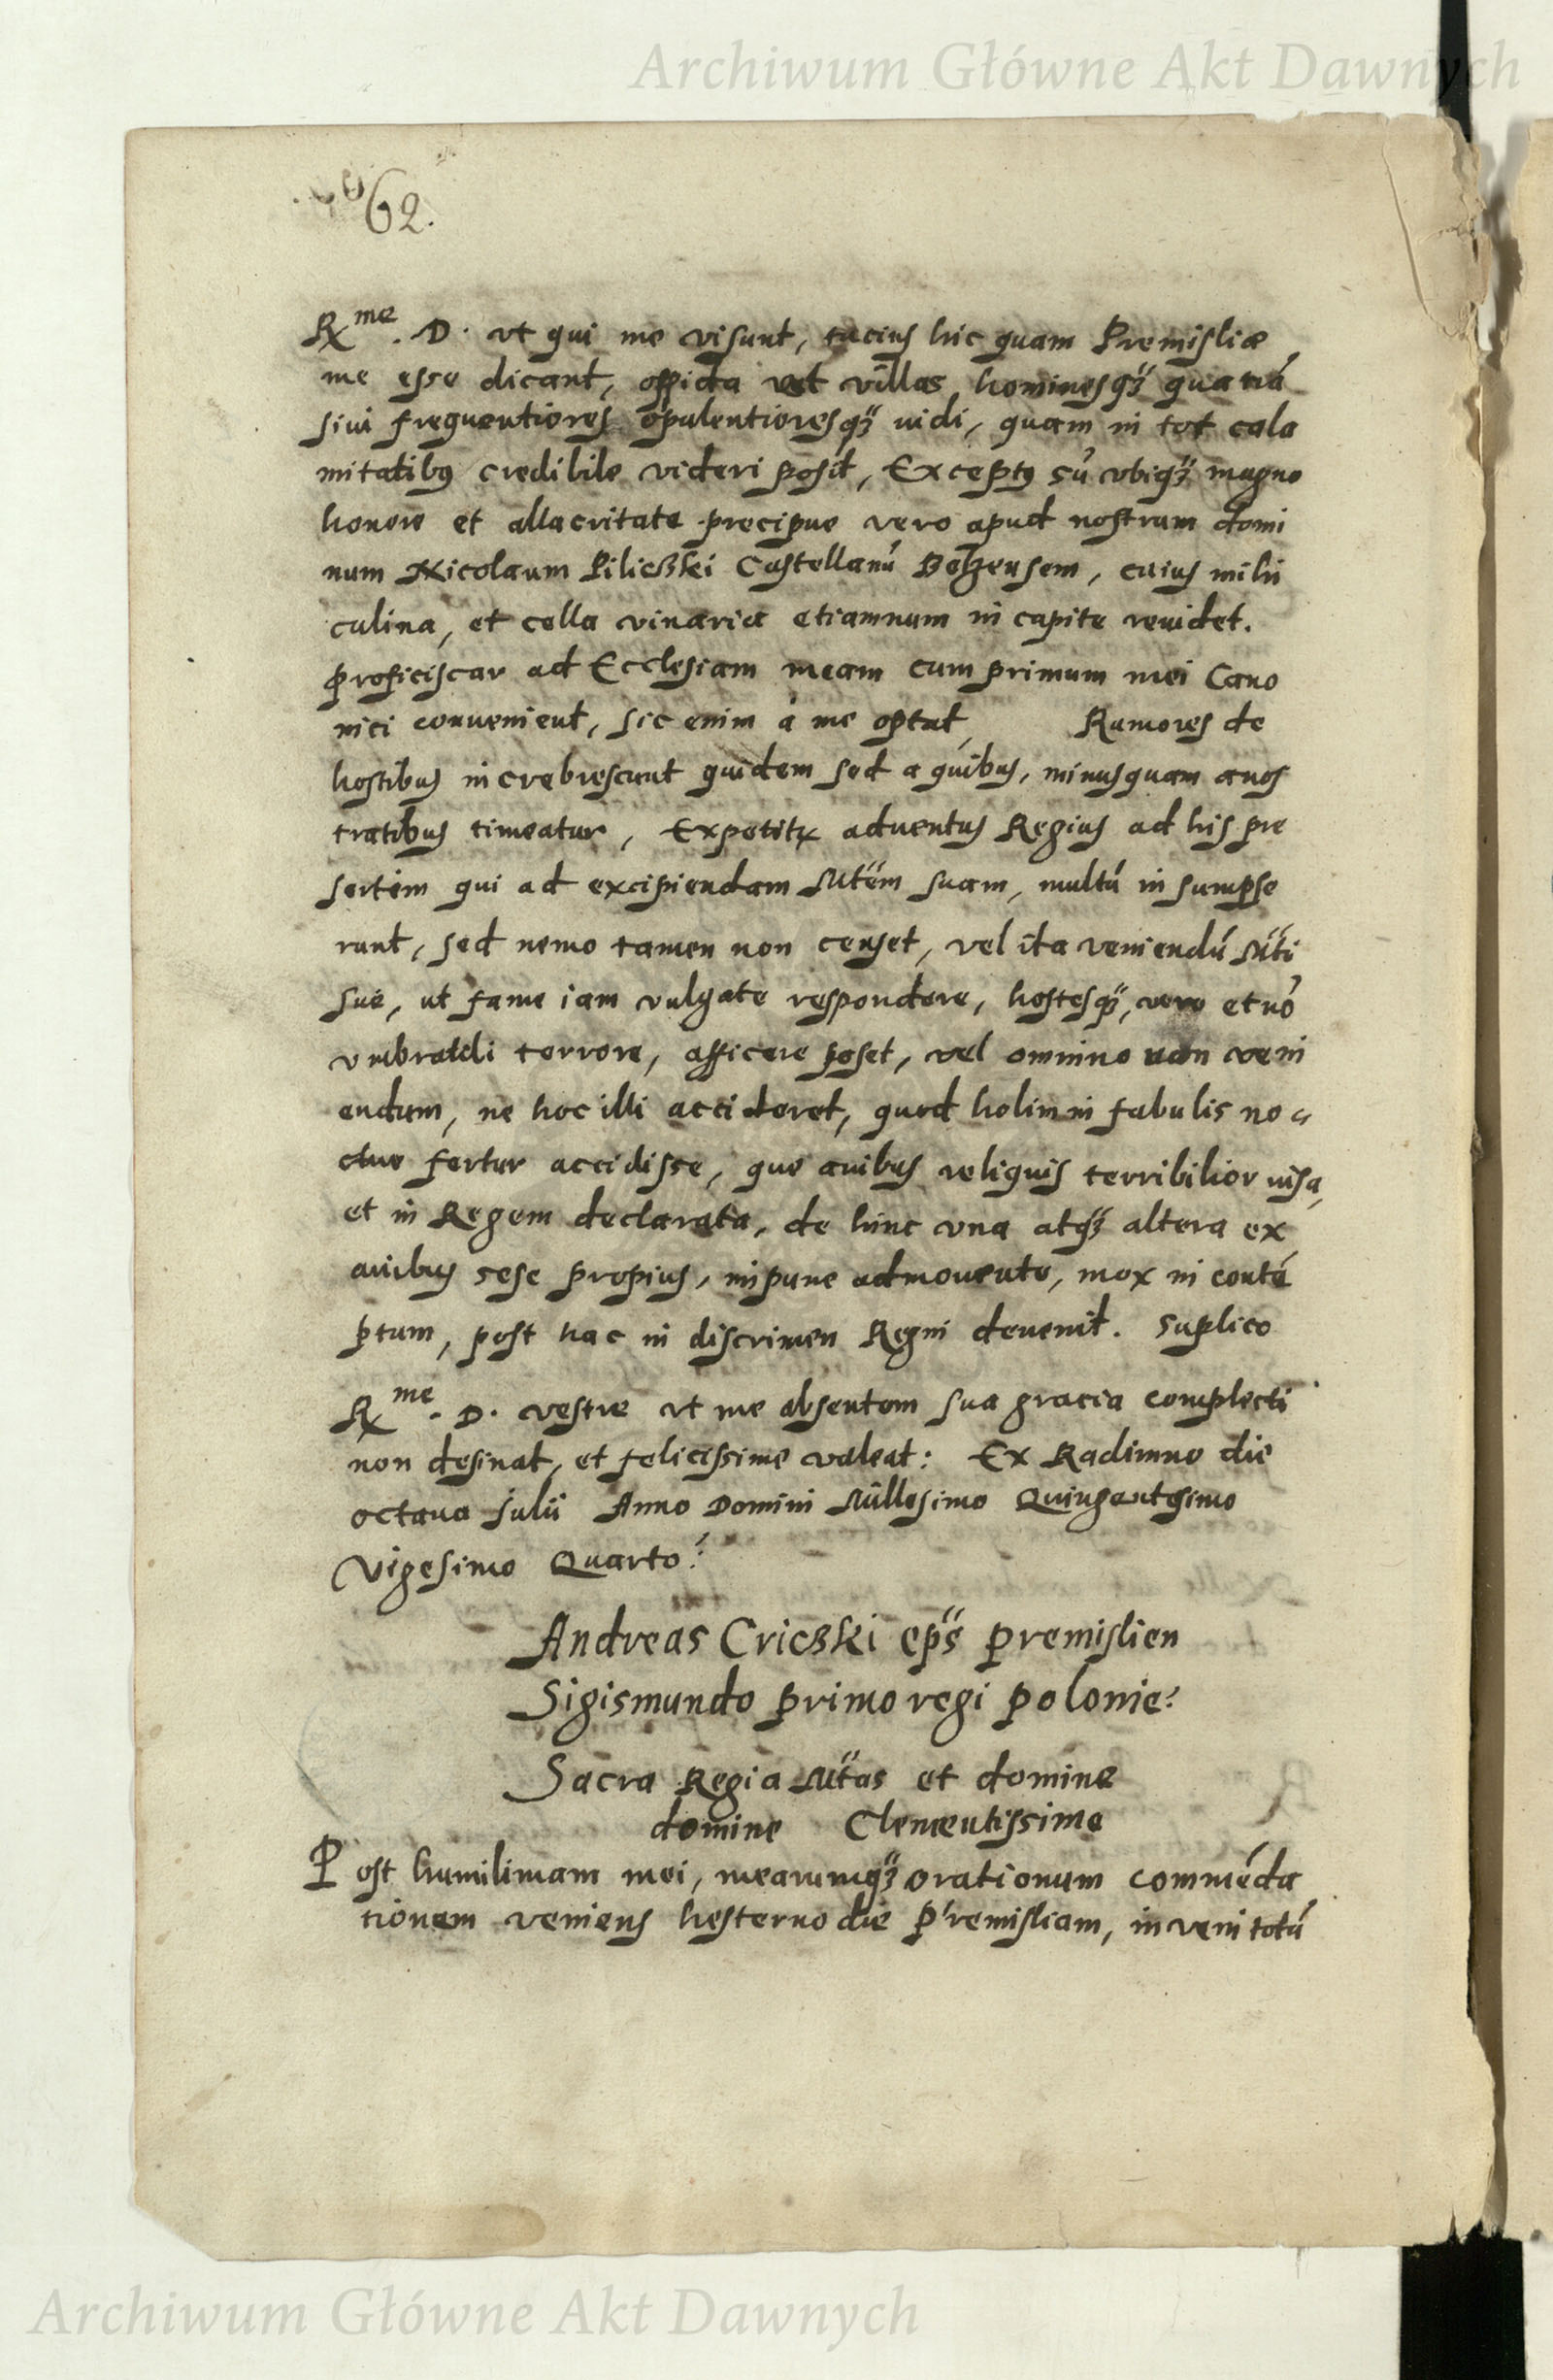 Archiwum Główne Akt Dawnych
62.
Rme. D. vt qui me visunt, tucius hic quam Premisliæ
me esse dicant, oppida vel villas hominesqȝ quatrã
sivi frequentiores opulentioresqȝ vidi, quam in tot cala
mitatibus credibile videri posit, Exceptus sũ vbiqȝ magno
honore et allacritate precipue vero apud nostram domi
num Nicolaum Pilieczki Castellanũ Belzensem, cuius mihi
culina, et cella vinaria etiamnum in capite renidet.
proficiscar ad Ecclesiam meam cum primum mei Cano
nici convenient, sic enim á me optat, Rumores de
hostibus increbrescunt quidem sed a quibus, minusquam anos
tratibus timeatur, Expetitr aduentus Regius ad his pre
sertim qui ad excipiendam Mtem suam, multũ insumpse
runt, sed nemo tamen non censet, vel ita veniendũ Mti
sue, ut fame iam vulgate respondere, hostesqȝ, vero et nõ
vmbratili terrore, afficere poset, vel omnino non veni
endum, ne hoc illi accideret, quod holim in fabulis no
ctue fertur accidisse, que auibus reliquis terribilior visa,
et in Regem declarata, de hinc vna atqȝ altera ex
auibus sese propius, inpune admouente, mox in contẽ
ptum, post hac in discrimen Regni deuenit. Suplico
Rme. D. vestre vt me absentem sua gracia complecti
non desinat, et felicissime valeat: Ex Radimno die
octava Julii Anno Domini Millesimo Quingentesimo
Vigesimo Quarto:
Andreas Criczki eps premislien
Sigismundo primo regi polonie:
Sacra Regia Mtas et domine
domine Clementissime
Post humilimam mei, mearumqȝ orationum commẽda
tionem veniens hesterno die Premisliam, inveni totũ
Archiwum Główne Akt Dawnych